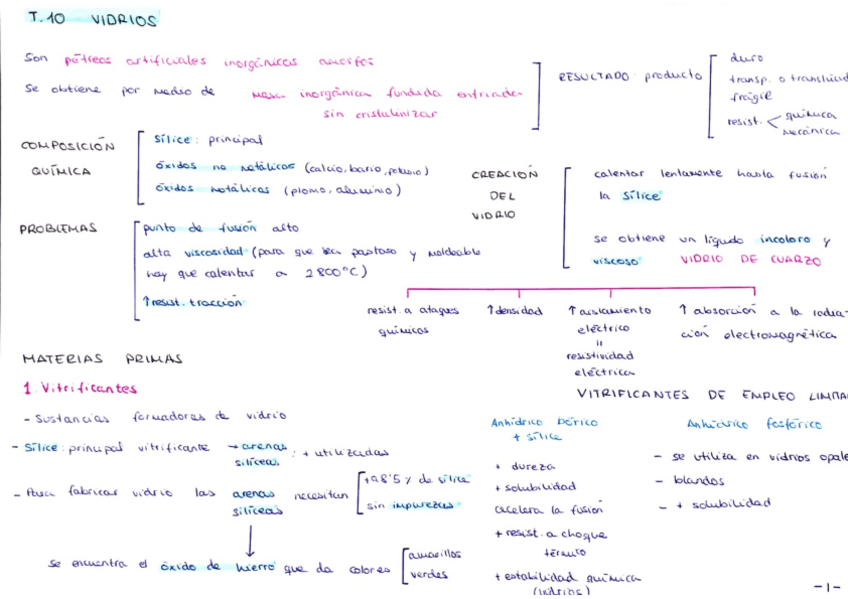 T.10 VIDRIOS
Son pétreos artificiales inorgánicos amorfos
Se obtiene por medio de masa inorgánica fundida enfriada
sin cristalinizar
RESULTADO: producto
duro
transp. o translúcid
frágil
resist. química
mecánica
COMPOSICIÓN
QUÍMICA
Sílice: principal
óxidos no metálicos (calcio, bario, potasio)
óxidos metálicos (plomo, aluminio)
CREACIÓN
DEL
VIDRIO
calentar lentamente hasta fusión
la sílice
se obtiene un líquido incoloro y
viscoso VIDRIO DE CUARZO
PROBLEMAS
punto de fusión alto
alta viscosidad (para que sea pastoso y moldeable
hay que calentar a 2800°C)
↑resist. tracción
resist. a ataques
químicos
↑densidad
↑aislamiento
eléctrico
=
resistividad
eléctrica
↑ absorción a la radia-
ción electromagnética
MATERIAS PRIMAS
1. Vitrificantes
- Sustancias formadoras de vidrio
- Sílice: principal vitrificante → arenas
silíceas : + utilizadas
- Para fabricar vidrio las arenas
silíceas necesitan
+98'5% de sílice
sin impurezas
Se encuentra el óxido de hierro que da colores
amarillos
verdes
VITRIFICANTES DE EMPLEO LIMITA
Anhídrico bórico
+ sílice
+ dureza
+ solubilidad
acelera la fusión
+ resist. a choque
térmico
+ estabilidad química
(vidrios)
Anhídrico fosfórico
- se utiliza en vidrios opale
- blandos
- + solubilidad
-1-